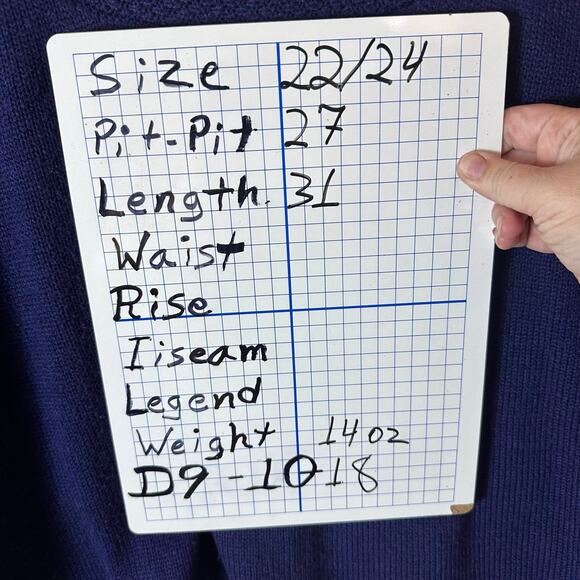 Size 22/24
Pit-Pit 27
Length 31
Waist
Rise
Iiseam
Legend
Weight 14oz
D9-10-18